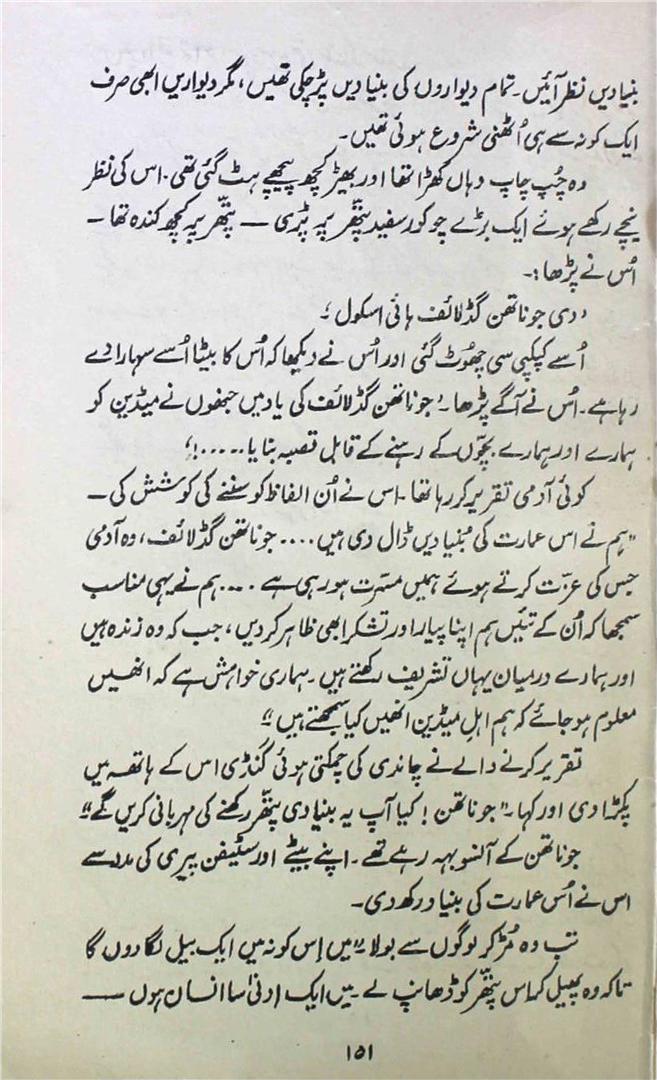 بنیادیں نظر آئیں۔ تمام دیواروں کی بنیادیں پڑچکی تھیں، مگر دیواریں ابھی صرف
ایک کونہ سے ہی اُٹھنی شروع ہوئی تھیں۔
وہ چُپ چاپ وہاں کھڑا تھا اور بھیڑ کچھ پیچھے ہٹ گئی تھی۔ اس کی نظر
نیچے رکھے ہوئے ایک بڑے چوکور سفید پتّھر پہ پڑی — پتّھر پہ کچھ کندہ تھا —
اُس نے پڑھا:۔
'دی جوناتھن گڈلائف ہائی اسکول'
اُسے کپکپی سی چھُوٹ گئی اور اُس نے دیکھا کہ اُس کا بیٹا اُسے سہارا دے
رہا ہے۔ اُس نے آگے پڑھا۔ 'جوناتھن گڈلائف کی یاد میں جنھوں نے میڈین کو
ہمارے اور ہمارے بچّوں کے رہنے کے قابل قصبہ بنایا.....!'
کوئی آدمی تقریر کر رہا تھا۔ اس نے اُن الفاظ کو سننے کی کوشش کی —
"ہم نے اس عمارت کی بُنیادیں ڈال دی ہیں.... جوناتھن گڈلائف، وہ آدمی
جس کی عزّت کرتے ہوئے ہمیں مسرّت ہورہی ہے .... ہم نے یہی مناسب
سمجھا کہ اُن کے تئیں ہم اپنا پیار اور تشکر ابھی ظاہر کردیں، جب کہ وہ زندہ ہیں
اور ہمارے درمیان یہاں تشریف رکھتے ہیں۔ ہماری خواہش ہے کہ انھیں
معلوم ہوجائے کہ ہم اہلِ میڈین انھیں کیا سمجھتے ہیں"
تقریر کرنے والے نے چاندی کی چمکتی ہوئی گنڈی اس کے ہاتھ میں
پکڑا دی اور کہا۔ "جوناتھن! کیا آپ یہ بنیادی پتّھر رکھنے کی مہربانی کریں گے"
جوناتھن کے آنسو بہہ رہے تھے۔ اپنے بیٹے اور سٹیفن پیری کی مدد سے
اس نے اُس عمارت کی بنیاد رکھ دی۔
تب وہ مُڑ کر لوگوں سے بولا۔ "میں اِس کونہ میں ایک بیل لگا دوں گا
تاکہ وہ پھیل کر اس پتّھر کو ڈھانپ لے۔ میں ایک ادنیٰ سا انسان ہوں —
۱۵۱